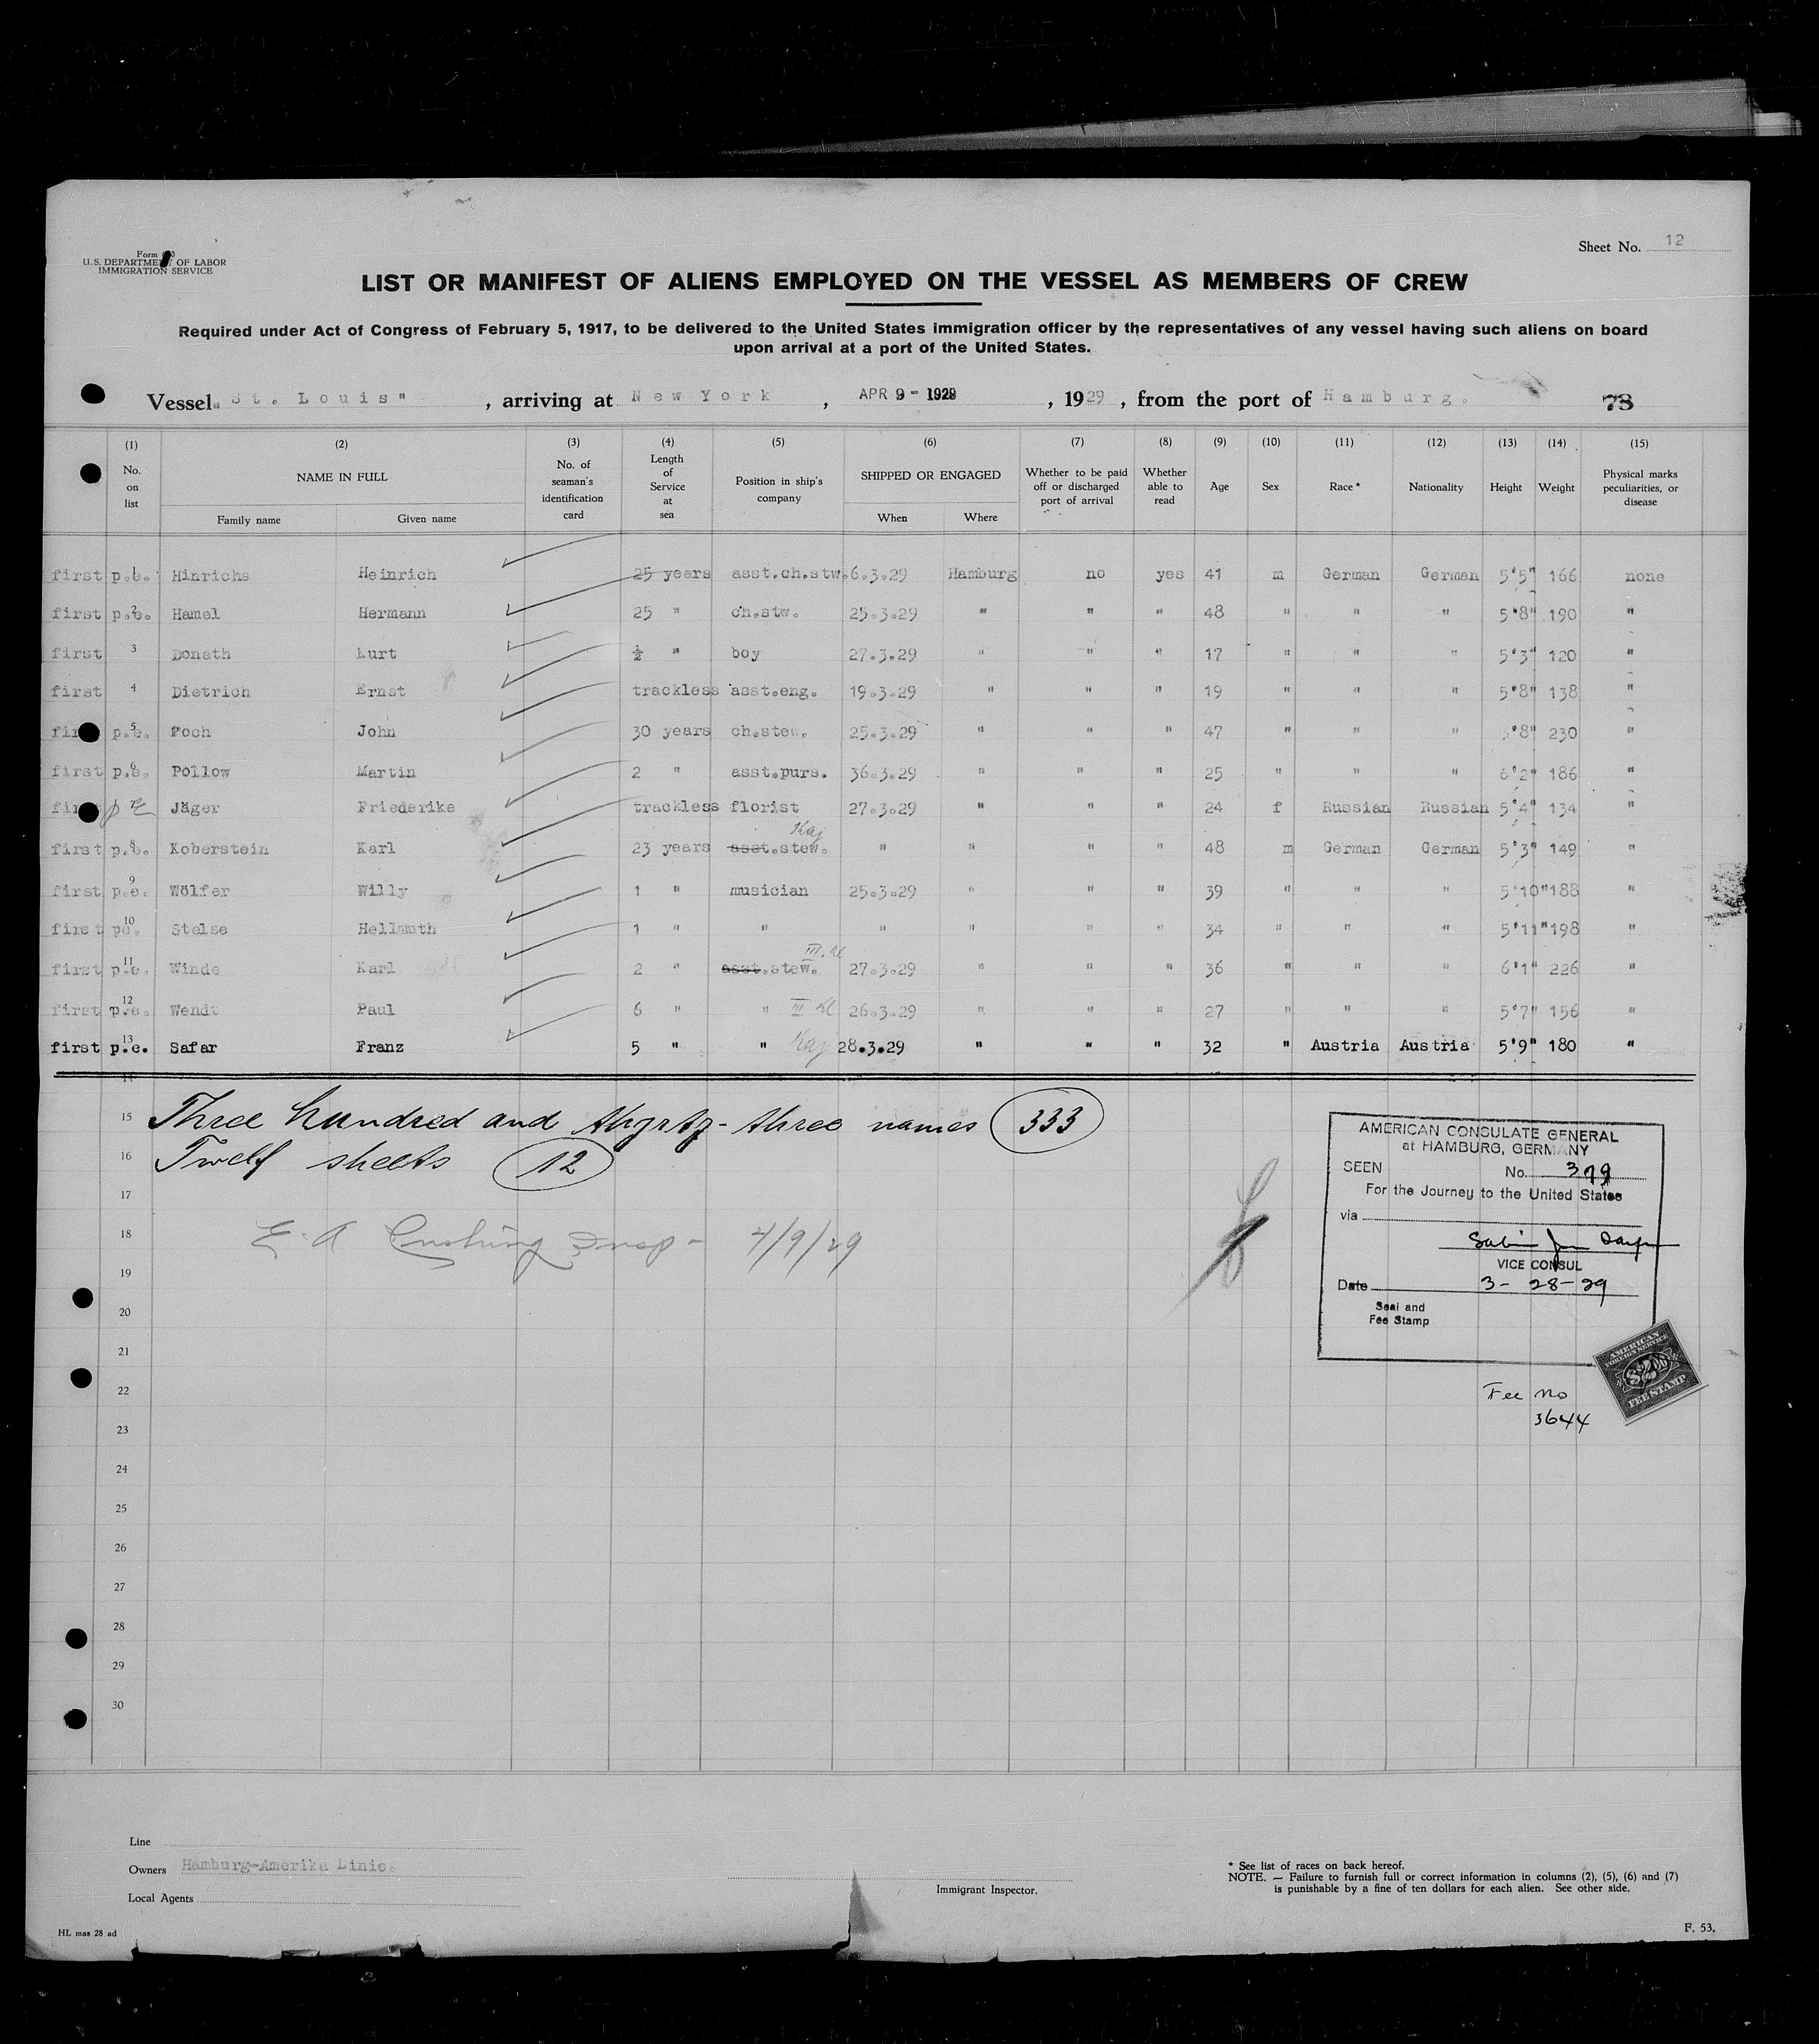 Sheet No. 12
Form
U.S. DEPARTMENT OF LABOR
IMMIGRATION SERVICE
LIST OR MANIFEST OF ALIENS EMPLOYED ON THE VESSEL AS MEMBERS OF CREW
Required under Act of Congress of February 5, 1917, to be delivered to the United States immigration officer by the representatives of any vessel having such aliens on board
upon arrival at a port of the United States.
Vessel „St. Louis" , arriving at New York , APR 9 - 1929 , 1929 , from the port of Hamburg. 73
(1) (2) (3) (4) (5) (6) (7) (8) (9) (10) (11) (12) (13) (14) (15)
No. on list NAME IN FULL No. of seaman's identification card Length of Service at sea Position in ship's company SHIPPED OR ENGAGED Whether to be paid off or discharged port of arrival Whether able to read Age Sex Race* Nationality Height Weight Physical marks peculiarities, or disease
Family name Given name When Where
first p.e. 1 Hinrichs Heinrich 25 years asst.ch.stw. 6.3.29 Hamburg no yes 41 m German German 5'5" 166 none
first p.e. 2 Hamel Hermann 25 " ch.stw. 25.3.29 " " " 48 " " " 5'8" 190 "
first 3 Donath Kurt ½ " boy 27.3.29 " " " 17 " " " 5'3" 120 "
first 4 Dietrich Ernst trackless asst.eng. 19.3.29 " " " 19 " " " 5'8" 138 "
first p.e. 5 Poch John 30 years ch.stew. 25.3.29 " " " 47 " " " 5'8" 230 "
first p.e. 6 Pollow Martin 2 " asst.purs. 36.3.29 " " " 25 " " " 6'2" 186 "
first pE 7 Jäger Friederike trackless florist 27.3.29 " " " 24 f Russian Russian 5'4" 134 "
Kaj
first p.e. 8 Koberstein Karl 23 years asst.stew. " " " " 48 m German German 5'3" 149 "
first p.e. 9 Wölfer Willy 1 " musician 25.3.29 " " " 39 " " " 5'10" 188 "
first pe. 10 Stelse Hellmuth 1 " " " " " " 34 " " " 5'11" 198 "
III. Kl
first p.e. 11 Winde Karl 2 " asst.stew. 27.3.29 " " " 36 " " " 6'1" 226 "
first p.e. 12 Wendt Paul 6 " " III Kl 26.3.29 " " " 27 " " " 5'7" 156 "
first p.e. 13 Safar Franz 5 " " Kaj 28.3.29 " " " 32 " Austria Austria 5'9" 180 "
14
15 Three hundred and thyrty-three names 333
16 Twelf sheets 12
17
18 E. A Cushing Insp - 4/9/29
19
20
21
22
23
24
25
26
27
28
29
30
AMERICAN CONSULATE GENERAL
at HAMBURG, GERMANY
SEEN No. 379
For the Journey to the United States
via
VICE CONSUL
Date 3-28-29
Seal and
Fee Stamp
AMERICAN
FOREIGN SERVICE
$2.00
FEE STAMP
Fee No
3644
Line
Owners Hamburg-Amerika Linie.
Local Agents
Immigrant Inspector.
* See list of races on back hereof.
NOTE. — Failure to furnish full or correct information in columns (2), (5), (6) and (7)
is punishable by a fine of ten dollars for each alien. See other side.
HL mas 28 ad
F. 53.